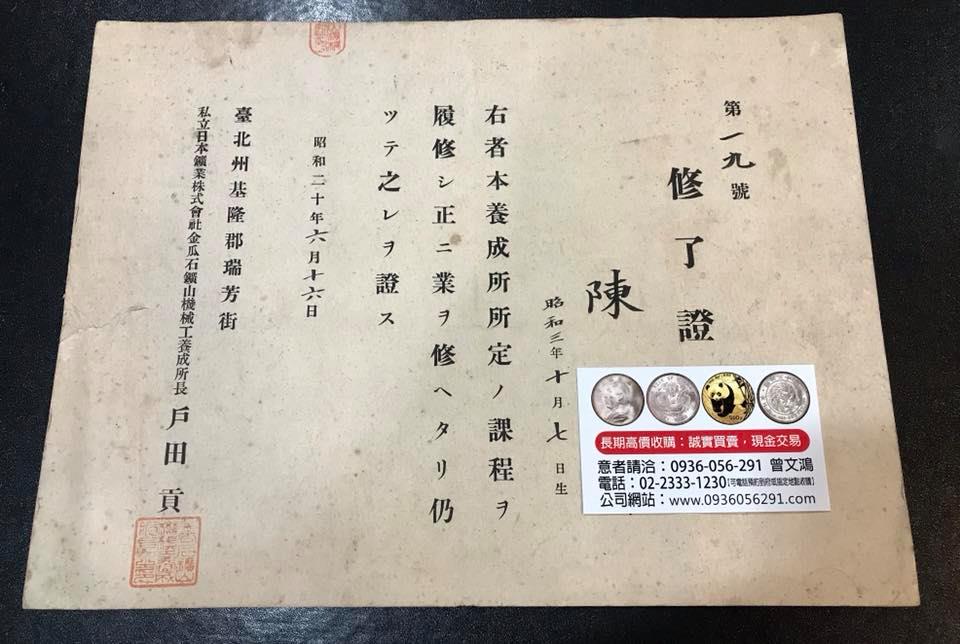 第一九號
修了證
陳
昭和三年十月七日生
右者本養成所所定ノ課程ヲ
履修シ正ニ業ヲ修ヘタリ仍
ツテ之レヲ證ス
昭和二十年六月十六日
臺北州基隆郡瑞芳街
私立日本鑛業株式會社金瓜石鑛山機械工養成所長 戶田貢
長期高價收購：誠實買賣，現金交易
意者請洽：0936-056-291 曾文鴻
電話：02-2333-1230【可電話預約到府或指定地點收購】
公司網站：www.0936056291.com